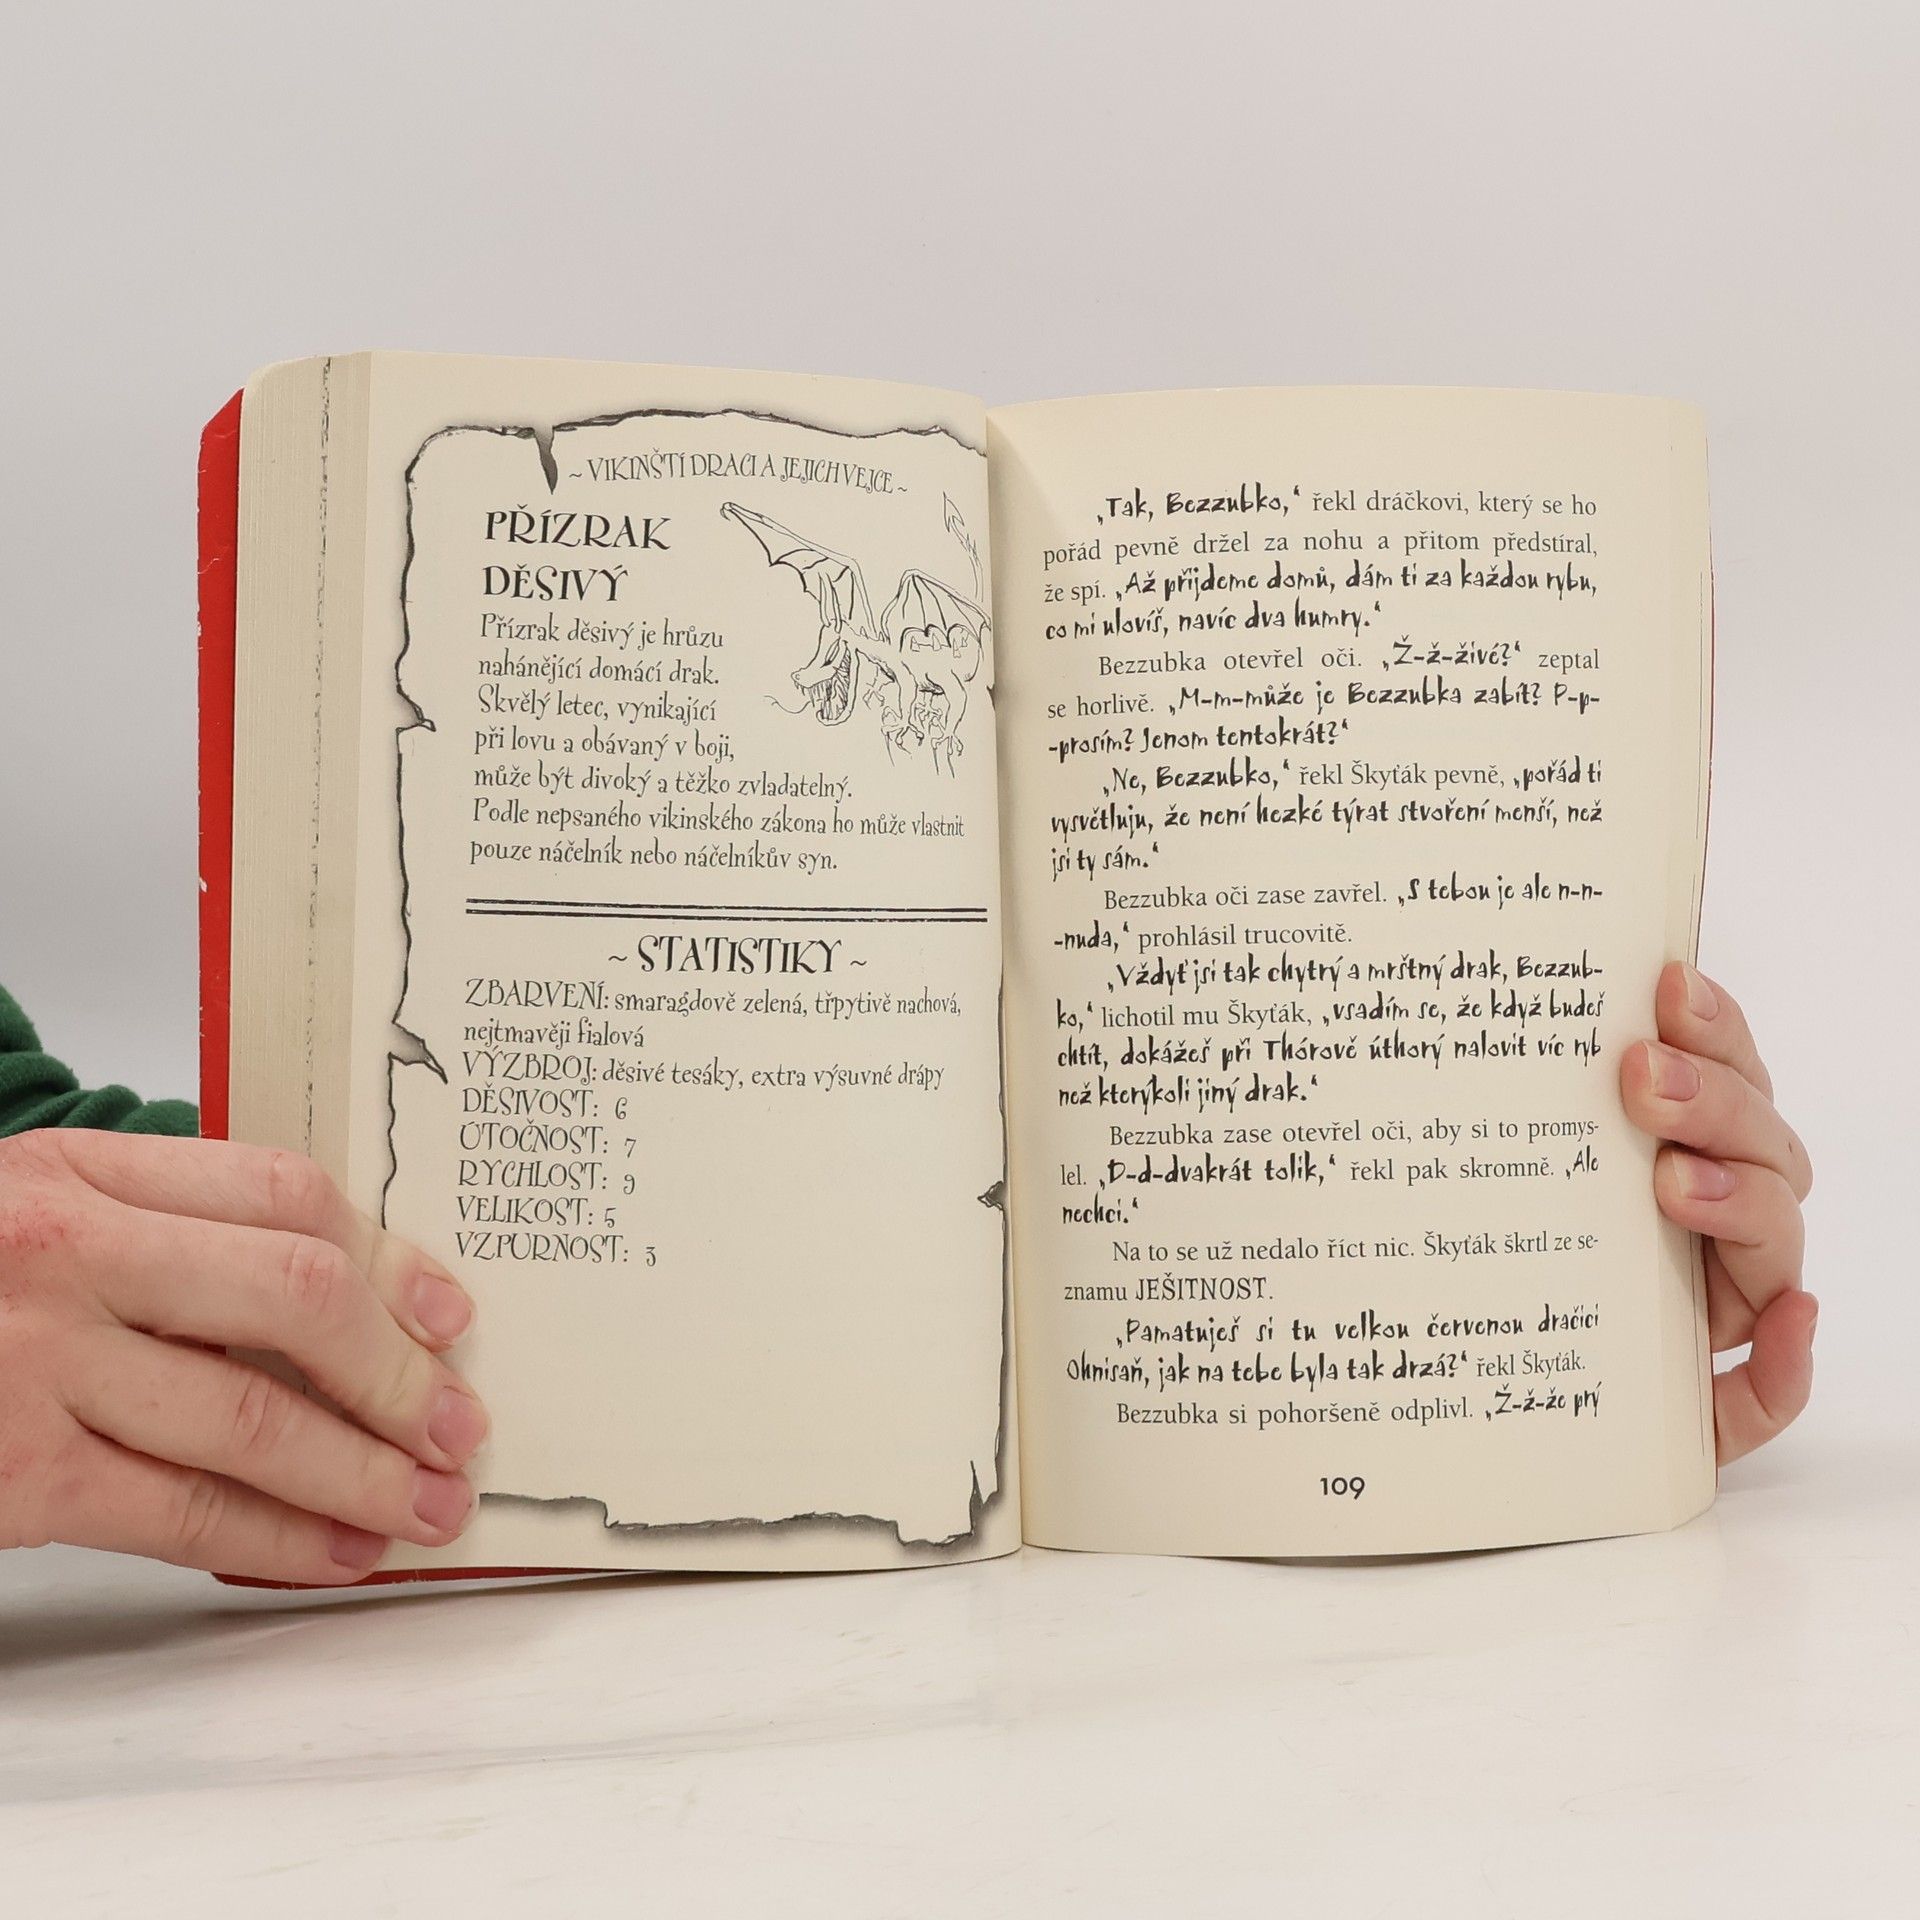 ~ VIKINŠTÍ DRACI A JEJICH VEJCE ~
PŘÍZRAK
DĚSIVÝ
Přízrak děsivý je hrůzu
nahánějící domácí drak.
Skvělý letec, vynikající
při lovu a obávaný v boji,
může být divoký a těžko zvladatelný.
Podle nepsaného vikinského zákona ho může vlastnit
pouze náčelník nebo náčelníkův syn.
~ STATISTIKY ~
ZBARVENÍ: smaragdově zelená, třpytivě nachová,
nejtmavěji fialová
VÝZBROJ: děsivé tesáky, extra výsuvné drápy
DĚSIVOST: 6
ÚTOČNOST: 7
RYCHLOST: 9
VELIKOST: 5
VZPURNOST: 3
„Tak, Bezzubko,“ řekl dráčkovi, který se ho
pořád pevně držel za nohu a přitom předstíral,
že spí. „Až přijdeme domů, dám ti za každou rybu,
co mi ulovíš, navíc dva humry.“
Bezzubka otevřel oči. „Ž-ž-živé?“ zeptal
se horlivě. „M-m-může je Bezzubka zabít? P-p-
-prosím? Jenom tentokrát?“
„Ne, Bezzubko,“ řekl Škyťák pevně, „pořád ti
vysvětluju, že není hezké týrat stvoření menší, než
jsi ty sám.“
Bezzubka oči zase zavřel. „S tebou je ale n-n-
-nuda,“ prohlásil trucovitě.
„Vždyť jsi tak chytrý a mrštný drak, Bezzub-
ko,“ lichotil mu Škyťák, „vsadím se, že když budeš
chtít, dokážeš při Thórově úthorý nalovit víc ryb
než kterýkoli jiný drak.“
Bezzubka zase otevřel oči, aby si to promys-
lel. „D-d-dvakrát tolik,“ řekl pak skromně. „Ale
nechci.“
Na to se už nedalo říct nic. Škyťák škrtl ze se-
znamu JEŠITNOST.
„Pamatuješ si tu velkou červenou dračici
Ohnisaň, jak na tebe byla tak drzá?“ řekl Škyťák.
Bezzubka si pohoršeně odplivl. „Ž-ž-že prý
109